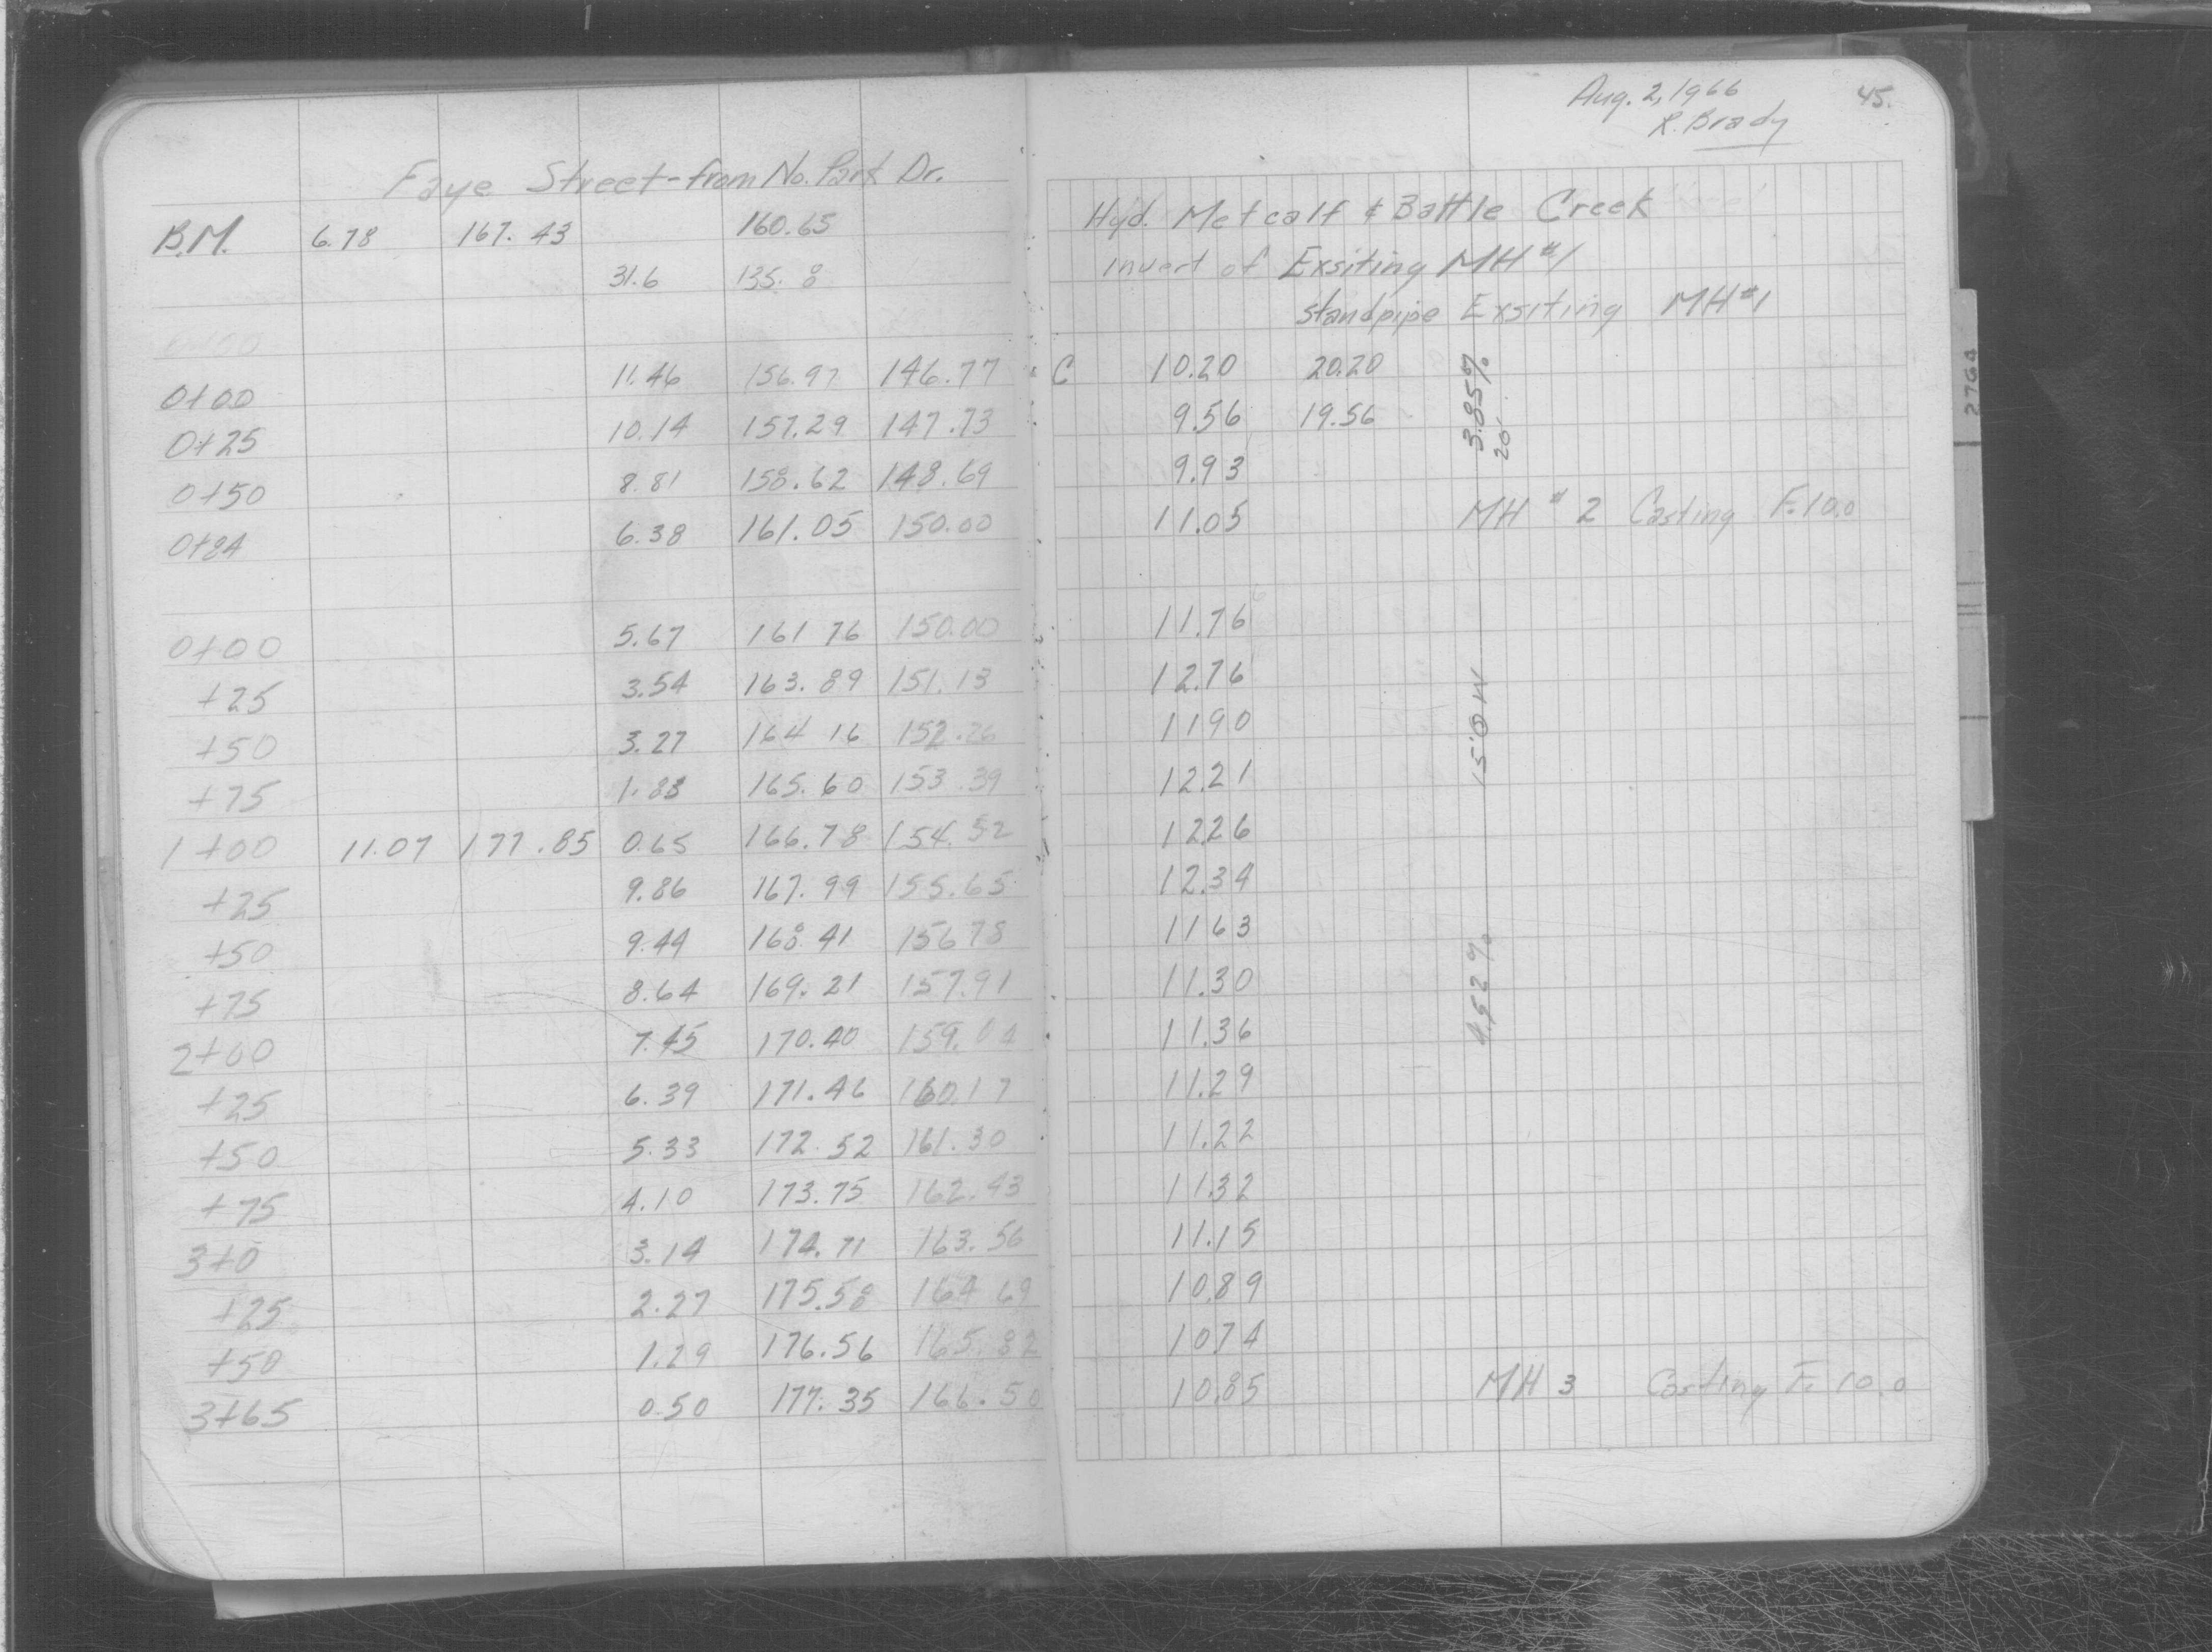 Aug. 2, 1966 45.
R. Brady
Faye Street - from No. Park Dr.
B.M. 6.78 167.43 160.65 Hyd. Metcalf & Battle Creek
31.6 135.8 invert of Exsiting MH #1
standpipe Exsiting MH #1
0+00 11.46 156.97 146.77 C 10.20 20.20
0+25 10.14 157.29 147.73 9.56 19.56
3.85% 20'
0+50 8.81 158.62 148.69 9.93
0+84 6.38 161.05 150.00 11.05 MH #2 Casting F. 10.0
0+00 5.67 161 76 150.00 11.76
+25 3.54 163.89 151.13 12.76
+50 3.27 164 16 152.26 11 90
15'0W
+75 1.83 165.60 153.39 12.21
1+00 11.07 177.85 0.65 166.78 154.52 12 26
+25 9.86 167.99 155.65 12.34
+50 9.44 168 41 156 78 11 63
+75 8.64 169.21 157.91 11.30
4.52%
2+00 7.45 170.40 159.04 11.36
+25 6.39 171.46 160.17 11.29
+50 5.33 172.52 161.30 11.22
+75 4.10 173.75 162.43 11.32
3+0 3.14 174.71 163.56 11.15
+25 2.27 175.58 164 69 10.89
+50 1.29 176.56 165.82 10 74
3+65 0.50 177.35 166.50 10.85 MH 3 Casting F. 10.0
2764